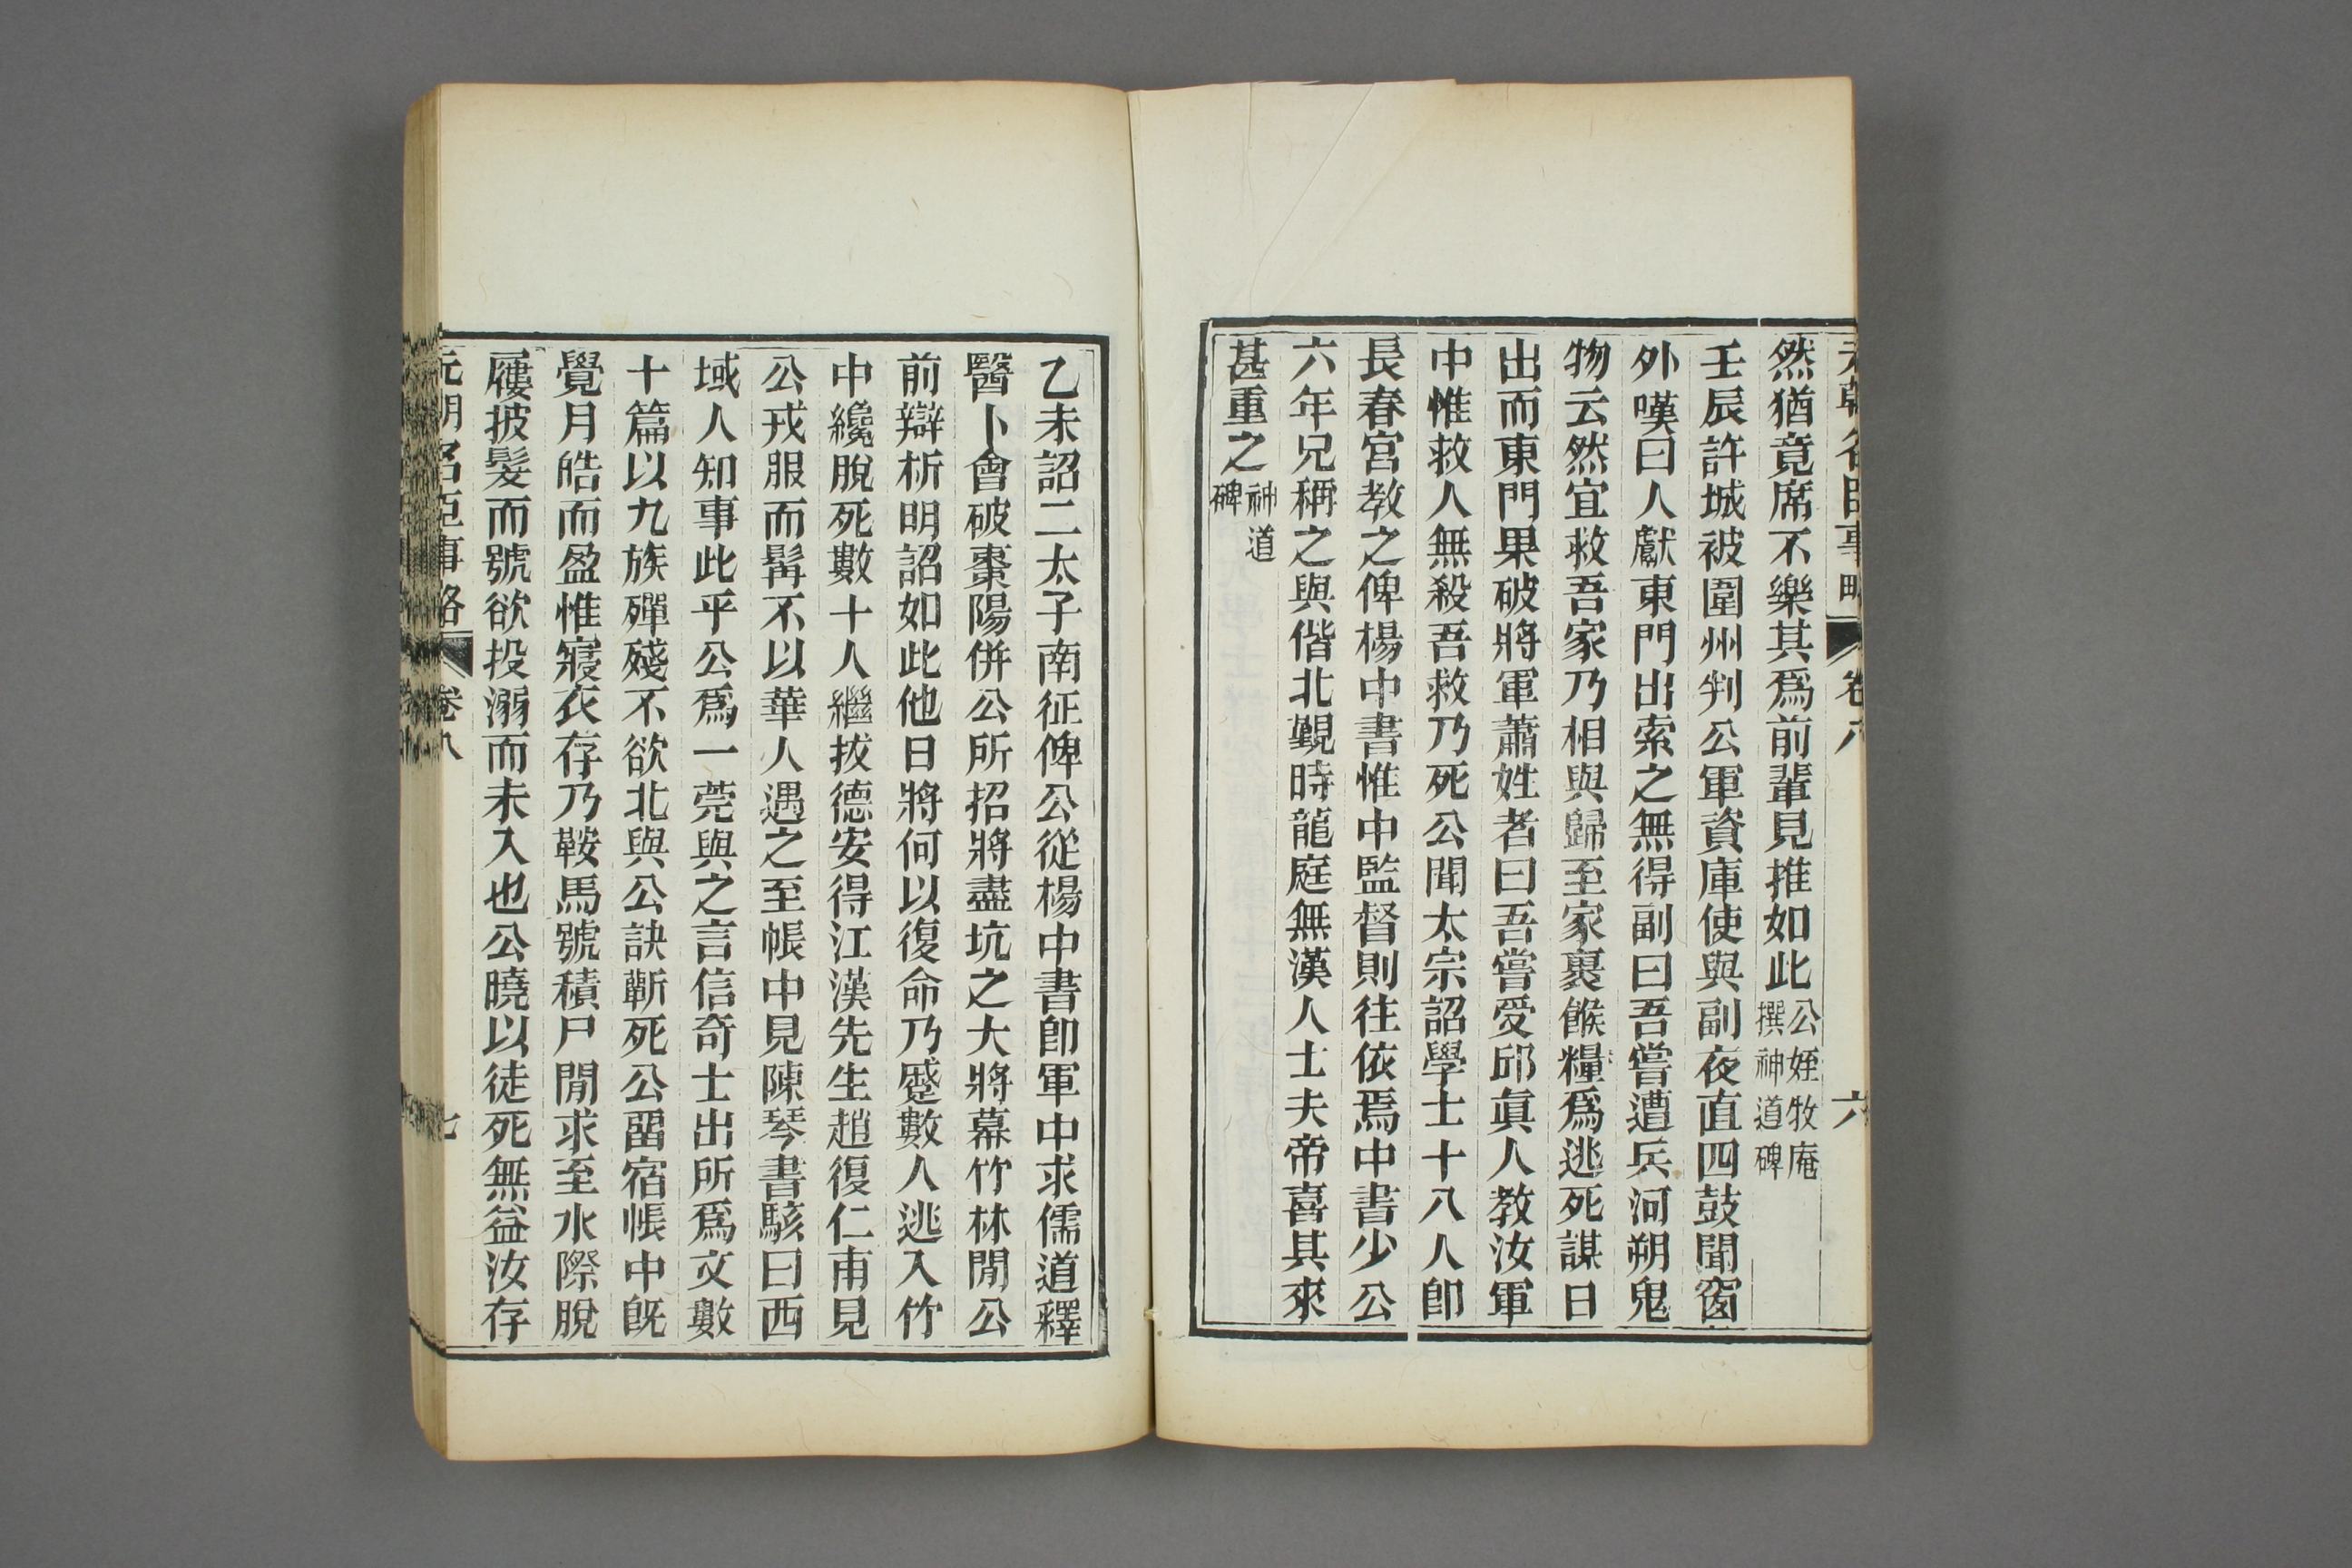 元朝名臣事略 卷八 六
然猶竟席不樂其爲前輩見推如此公姪牧庵撰神道碑
壬辰許城被圍州判公軍資庫使與副夜直四鼓聞窗
外嘆曰人獻東門出索之無得副曰吾嘗遭兵河朔鬼
物云然宜救吾家乃相與歸至家裹餱糧爲逃死謀日
出而東門果破將軍蕭姓者曰吾嘗受邱眞人教汝軍
中惟救人無殺吾救乃死公聞太宗詔學士十八人卽
長春宮教之俾楊中書惟中監督則往依焉中書少公
六年兄稱之與偕北覲時龍庭無漢人士夫帝喜其來
甚重之神道碑
乙未詔二太子南征俾公從楊中書卽軍中求儒道釋
醫卜會破棗陽併公所招將盡坑之大將幕竹林閒公
前辯析明詔如此他日將何以復命乃蹙數人逃入竹
中纔脫死數十人繼拔德安得江漢先生趙復仁甫見
公戎服而髯不以華人遇之至帳中見陳琴書駭曰西
域人知事此乎公爲一莞與之言信奇士出所爲文數
十篇以九族殫殘不欲北與公訣蘄死公畱宿帳中旣
覺月皓而盈惟寢衣存乃鞍馬號積尸閒求至水際脫
屨披髮而號欲投溺而未入也公曉以徒死無益汝存
元朝名臣事略 卷八 七